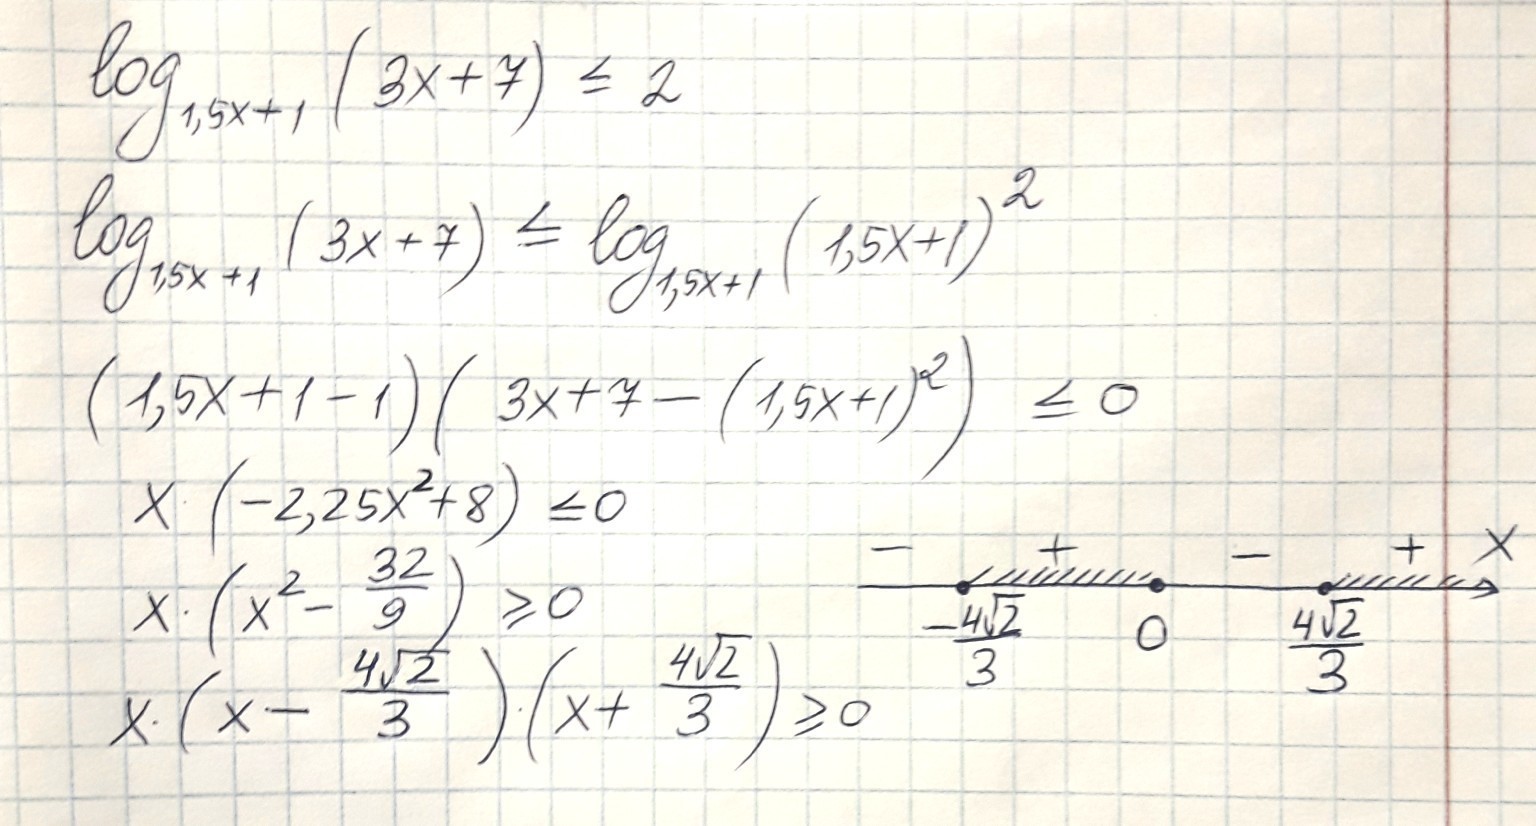 log_{1,5x+1} (3x+7) ≤ 2
log_{1,5x+1} (3x+7) ≤ log_{1,5x+1} (1,5x+1)^2
(1,5x+1-1)(3x+7-(1,5x+1)^2) ≤ 0
x·(-2,25x^2+8) ≤ 0
x·(x^2 - 32/9) ≥ 0
x·(x - 4√2/3)·(x + 4√2/3) ≥ 0
- + - + x
-4√2/3 0 4√2/3